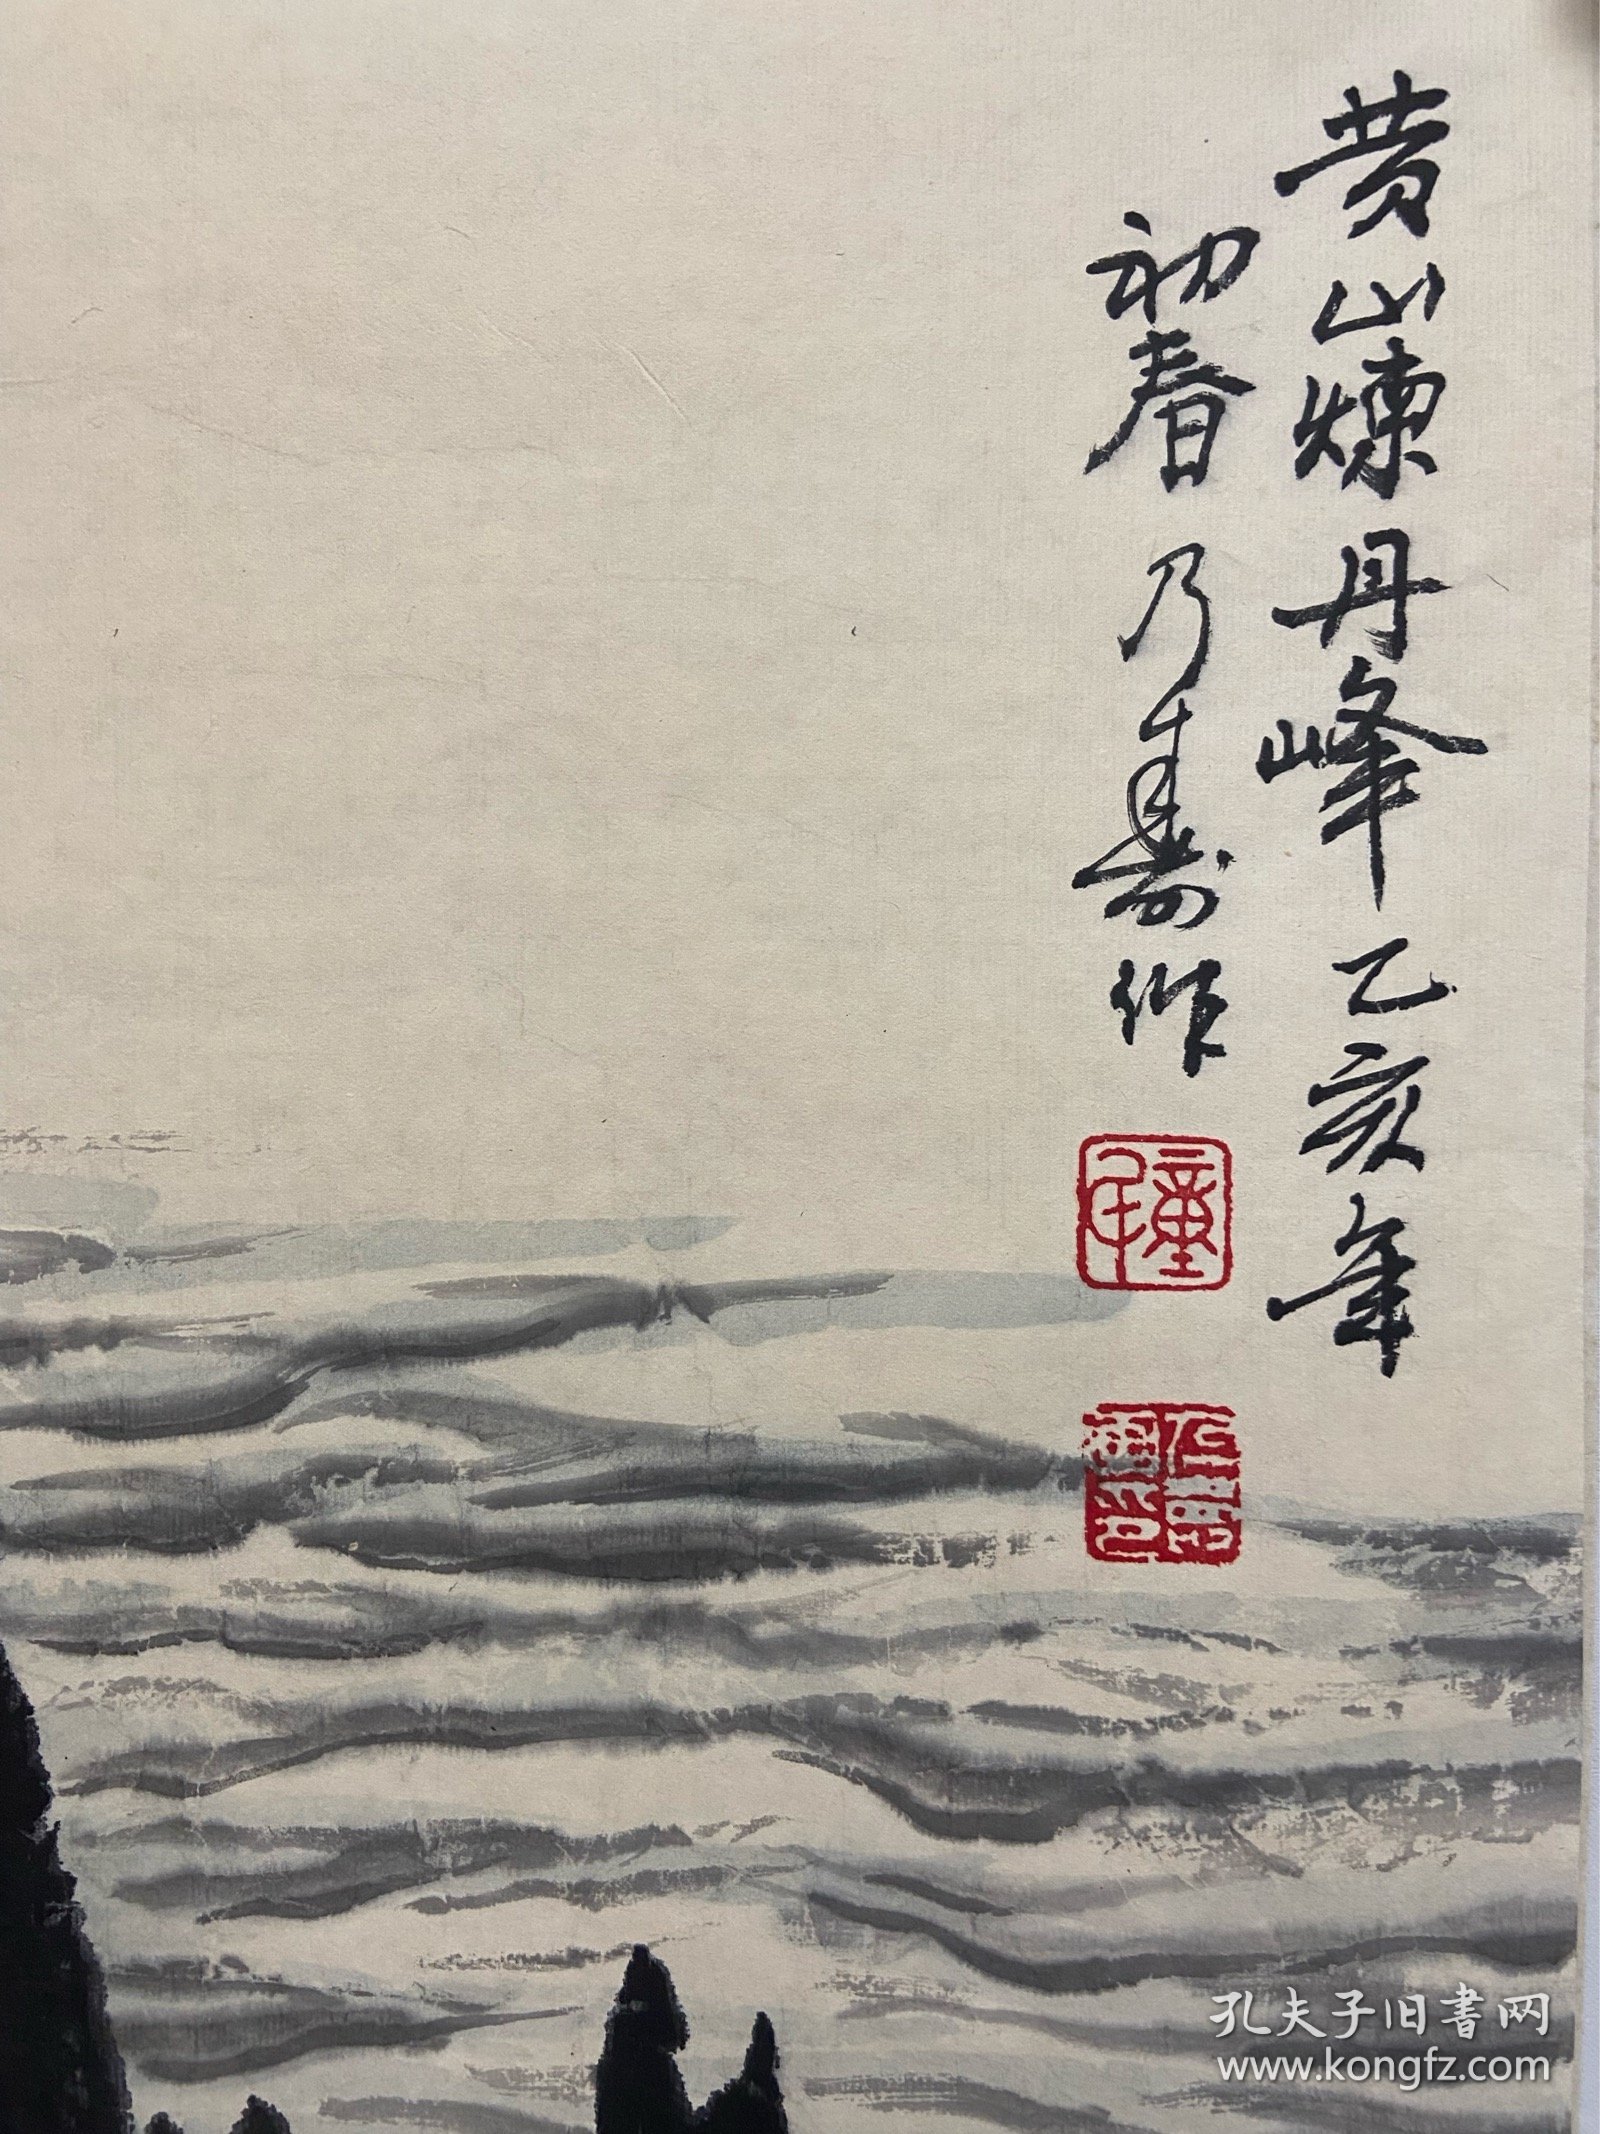 黄山煉丹峰乙亥年
初春乃壽作
孔夫子旧书网
www.kongfz.com